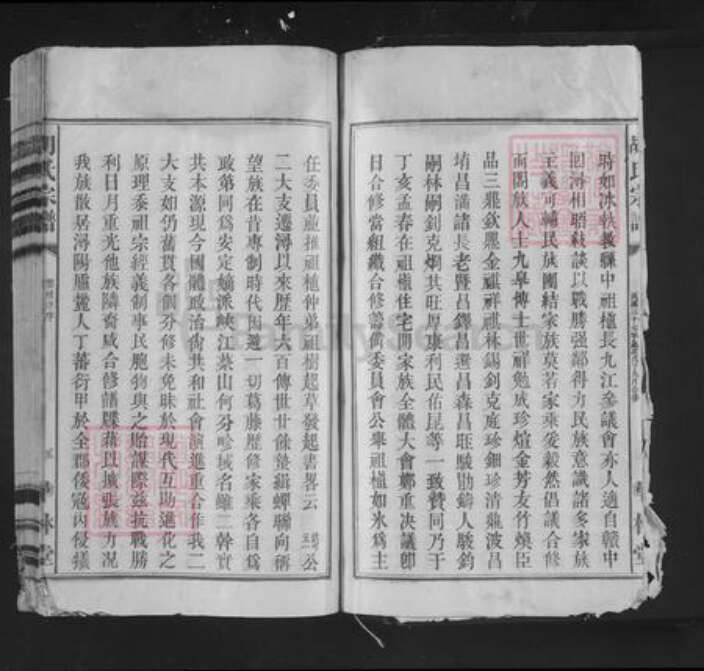 時如冰執教縣中祖植長九江參議會亦人適自贛中
回潯相晤敍談以戰勝强鄰得力民族意識諸多家族
主義可輔民族團結家族莫若家乘爰毅然倡議合修
商閤族人士九皋博士世祥勉成珍煊金芳友竹煥臣
品三飛欽麗金祺祥祺林錫釗克庭珍鈿珍清龍波昌
堉昌滿諸長老暨昌鐸昌選昌森昌旺駿勛鑄人駿鈞
嗣林嗣釗克炯其旺厚康利民佑昆等一致贊同乃于
丁亥孟春在祖植住宅開家族全體大會鄭重决議卽
日合修當組織合修籌備委員會公舉祖植如氷爲主
任委員並推祖植仲弟祖樹起草發起書畧云 公
二大支遷潯以來歷年六百傳世廿餘蟄緝蟬聯向稱
望族在昔專制時代因避一切葛藤歷修家乘各自爲
政第同爲安定嫡派峽江蔡山何分畛域名雖二幹實
共本源現今國體政治尙共和社會演進重合作我二
大支如仍舊貫各個分修未免昧於現代互助進化之
原理忝祖宗經義制事民胞物與之貽謀際茲抗戰勝
利日月重光他族隣裔咸合修譜牒藉以擴張族力况
我族散居潯陽廬麓人丁蕃衍甲於全郡倭寇內侵蟻
胡氏宗譜
林堂